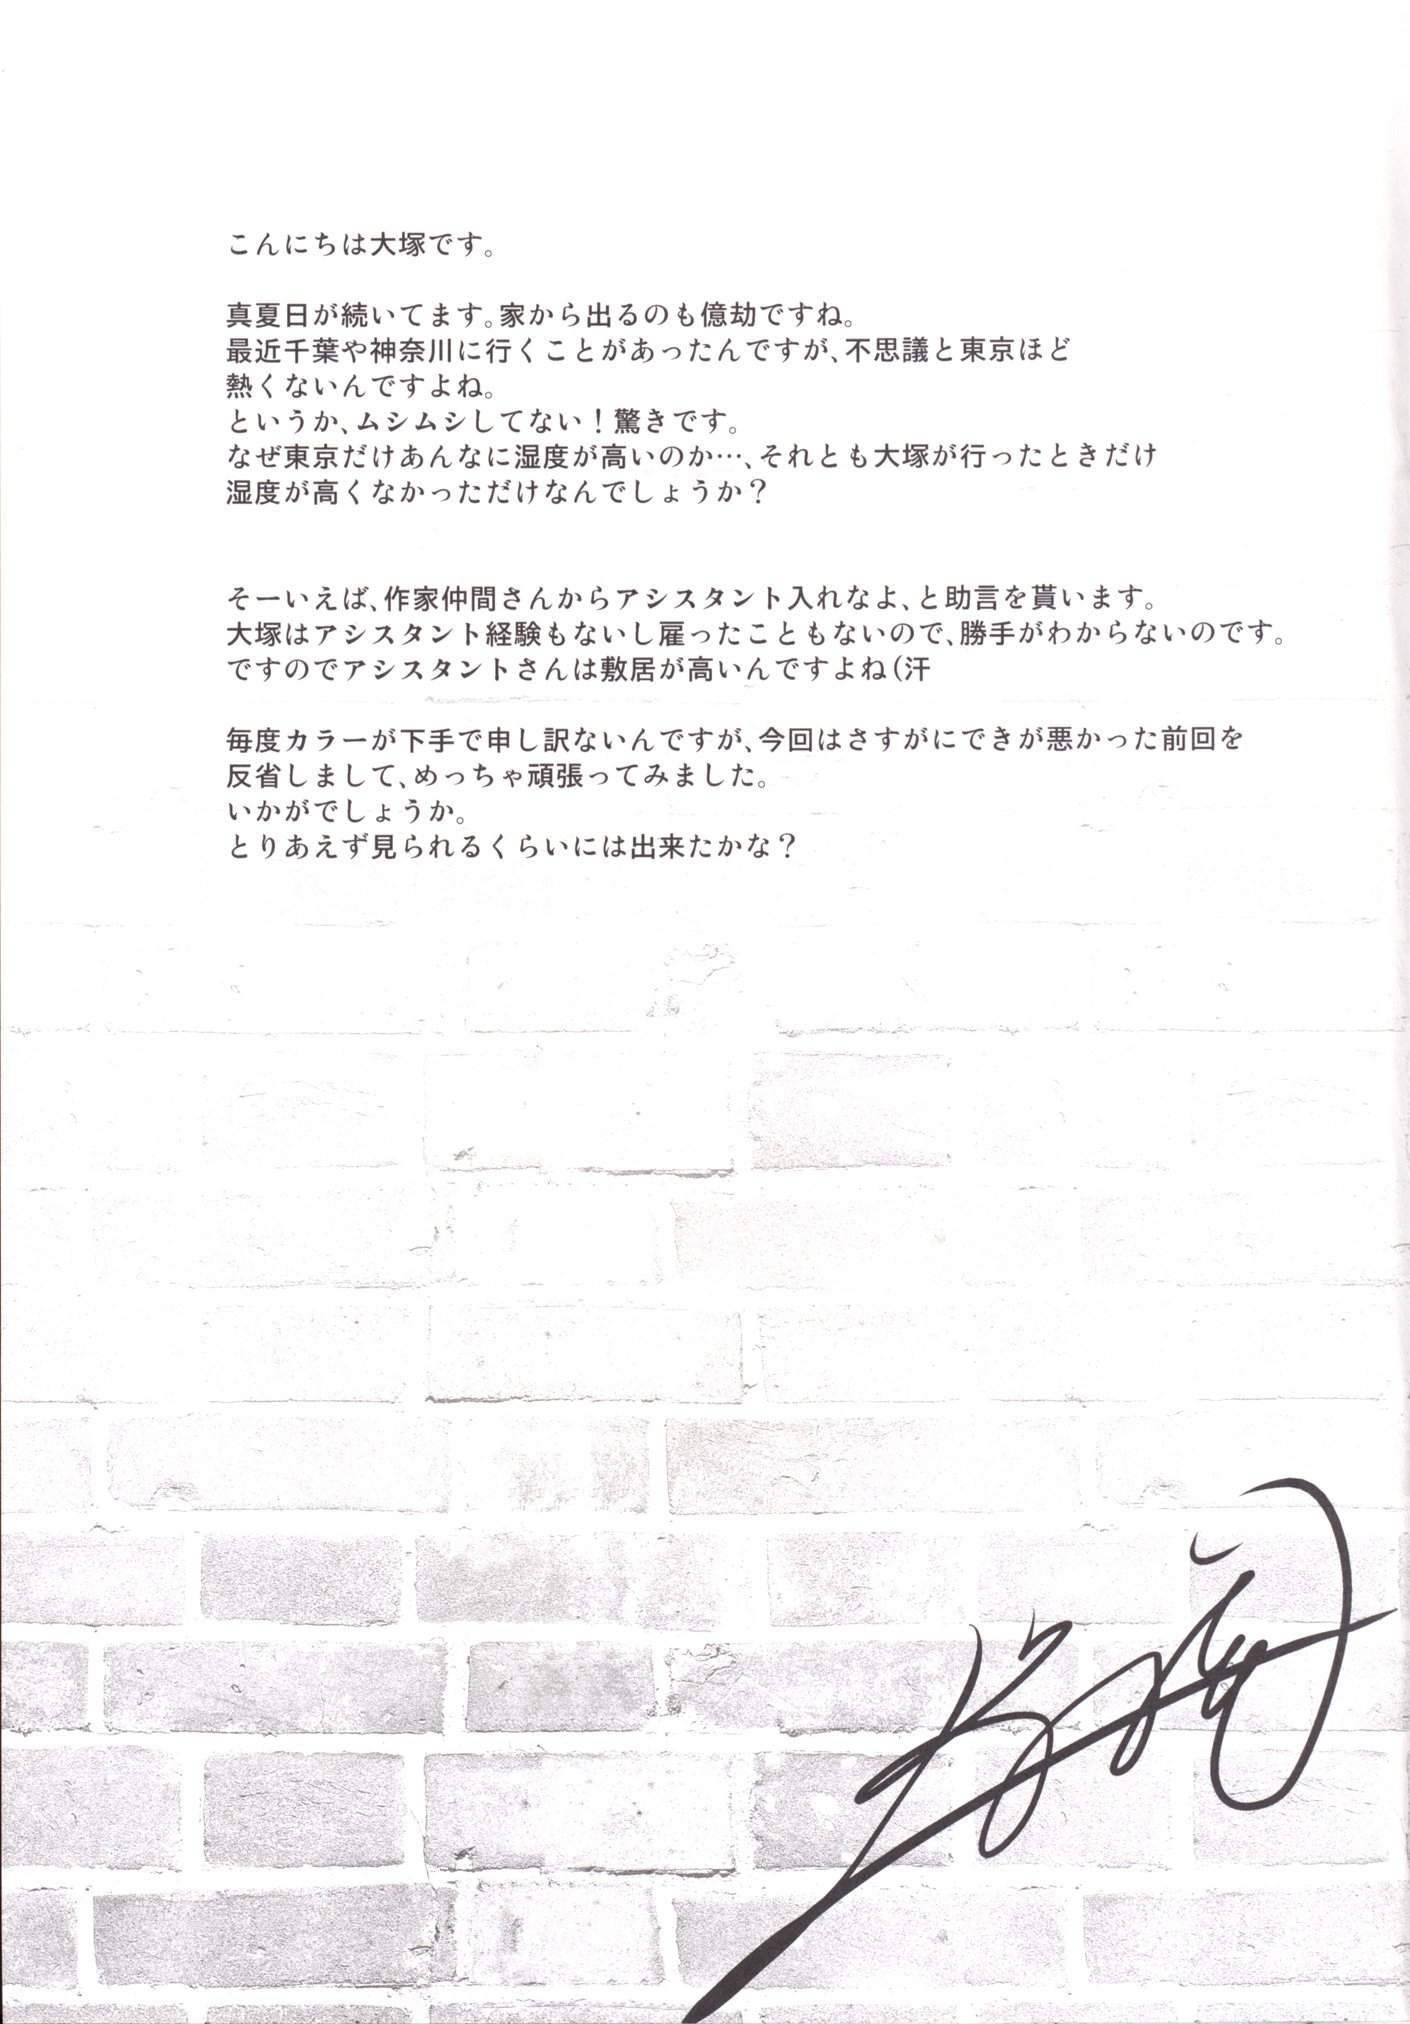 こんにちは大塚です。
真夏日が続いてます。家から出るのも億劫ですね。
最近千葉や神奈川に行くことがあったんですが、不思議と東京ほど
熱くないんですよね。
というか、ムシムシしてない！驚きです。
なぜ東京だけあんなに湿度が高いのか…、それとも大塚が行ったときだけ
湿度が高くなかっただけなんでしょうか？
そーいえば、作家仲間さんからアシスタント入れなよ、と助言を貰います。
大塚はアシスタント経験もないし雇ったこともないので、勝手がわからないのです。
ですのでアシスタントさんは敷居が高いんですよね（汗
毎度カラーが下手で申し訳ないんですが、今回はさすがにできが悪かった前回を
反省しまして、めっちゃ頑張ってみました。
いかがでしょうか。
とりあえず見られるくらいには出来たかな？